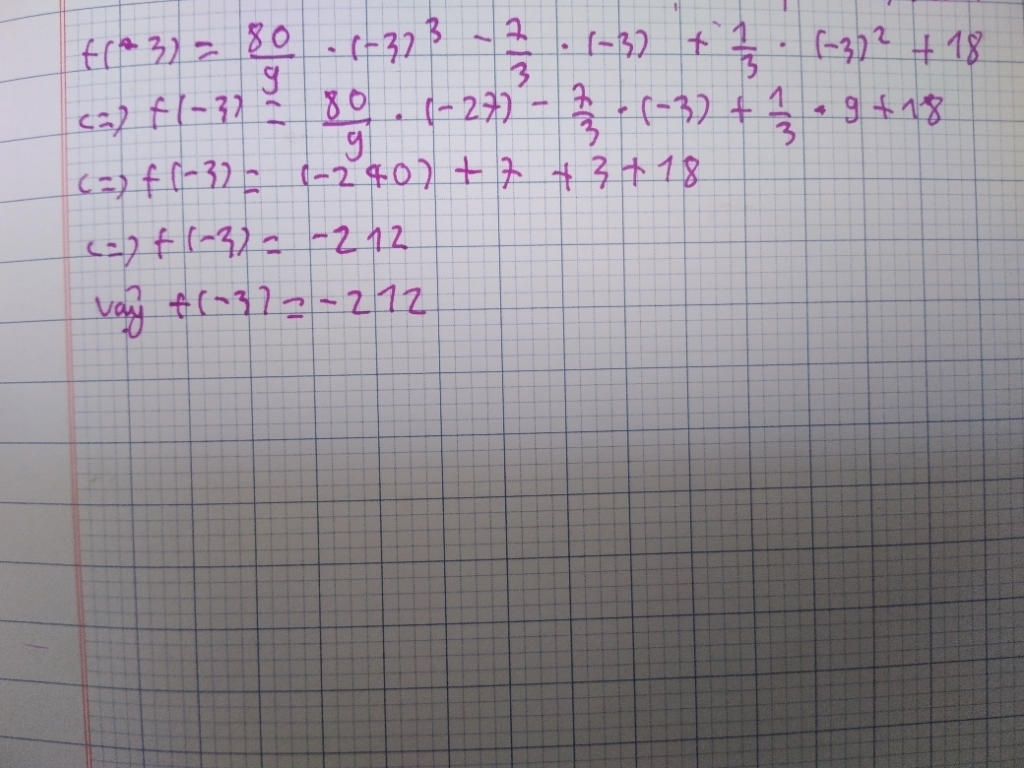 f(-3) = 80/9 · (-3)³ - 7/3 · (-3) + 1/3 · (-3)² + 18
<=> f(-3) = 80/9 · (-27) - 7/3 · (-3) + 1/3 · 9 + 18
<=> f(-3) = (-240) + 7 + 3 + 18
<=> f(-3) = -212
vậy f(-3) = -212